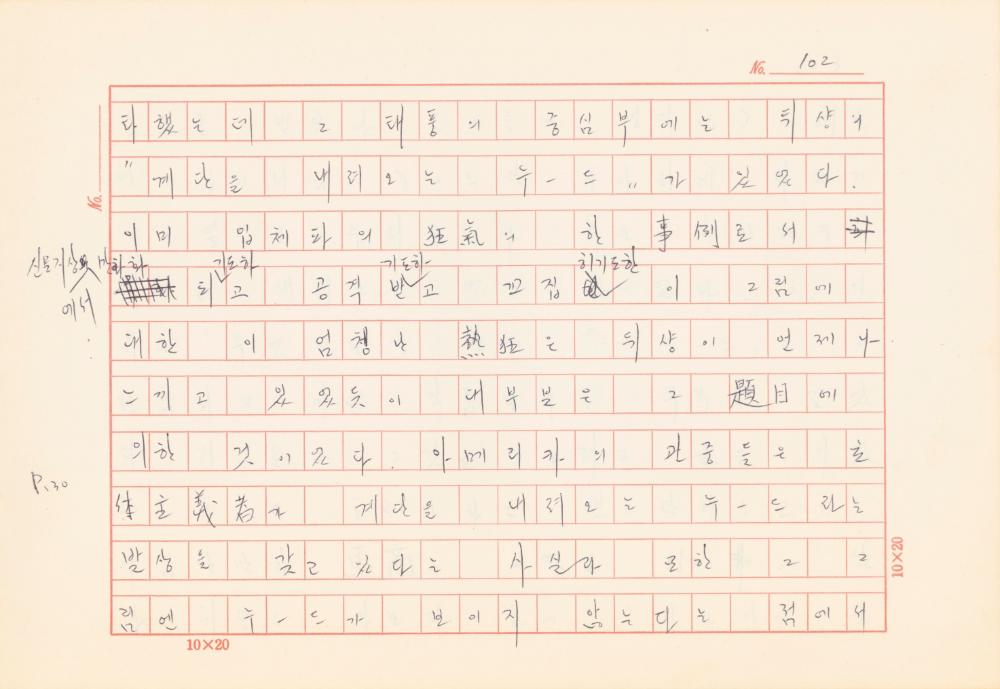 No. 102
타했는데 그 태풍의 중심부에는 뒤샹의
"계단을 내려오는 누-드"가 있었다.
No.
이미 입체파의 狂氣의 한 事例로서
신문지상 만화화 기도하 기도하 하기도한
에서
되고 공격 받고 끄집 이 그림에
대한 이 엄청난 熱狂은 뒤샹이 언제나
느끼고 있었듯이 대부분은 그 題目에
의한 것이었다. 아메리카의 관중들은
P.30
主義者가 계단을 내려오는 누-드라는
발상을 갖고 있다는 사실과 또한 그 그
림엔 누-드가 보이지 않는다는 점에서
10×20
10×20